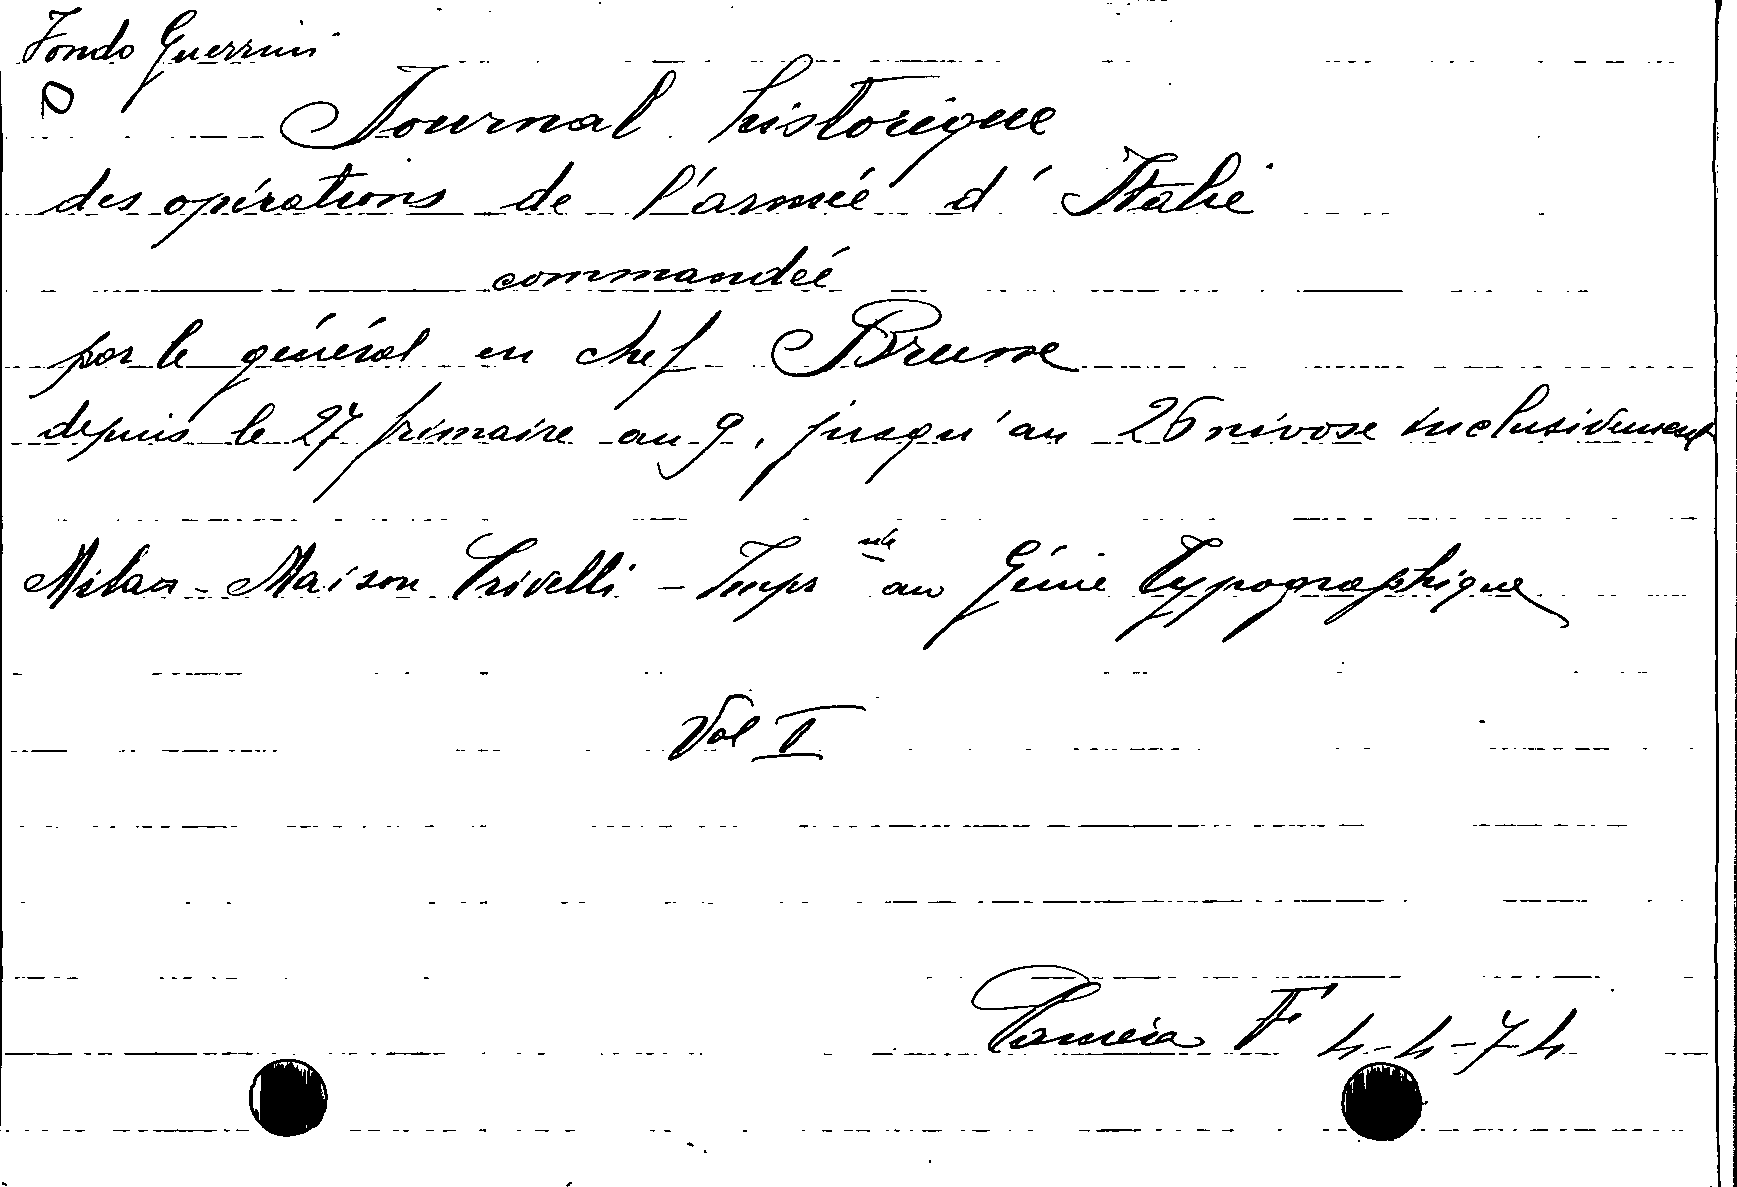 Fondo Guerrini
O
Journal historique
des opérations de l'armée d'Italie
commandée
par le général en chef Brune
depuis le 27 frimaire an 9, jusqu'au 26 nivose inclusivement
Milan - Maison Trivelli - Impr au Génie Typographique
Vol I
Camera F 4-4-74